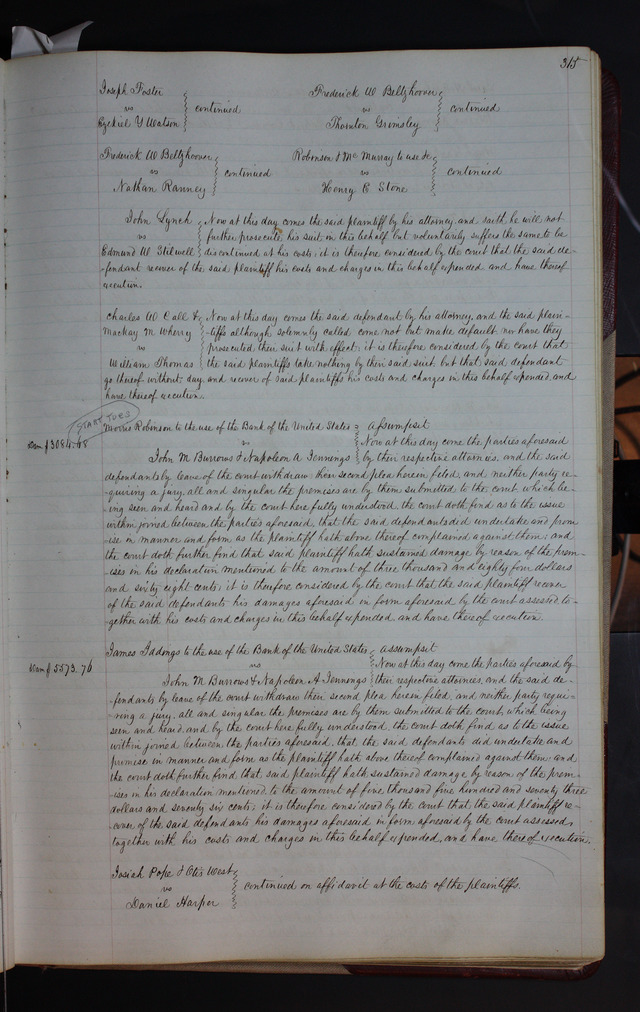 315
Joseph Foster
vs continued
Ezekiel Y Watson
Frederick W Beltzhoover
vs continued
Thornton Grimsley
Frederick W Beltzhoover
vs continued
Nathan Ranney
Robinson & McMurray to use &c
vs continued
Henry C Stone
John Lynch Now at this day comes the said plaintiff by his attorney and saith he will not
vs further prosecute his suit in this behalf but voluntarily suffers the same to be
Edmund W Stilwell discontinued at his costs; it is therefore considered by the court that the said de-
-fendant recover of the said plaintiff his costs and charges in this behalf expended and have thereof
execution.
Charles W Call & Now at this day comes the said defendant by his attorney and the said plain-
Mackay M Wherry -tiffs although solemnly called come not but make default nor have they
vs prosecuted their suit with effect; it is therefore considered by the court that
William Thomas the said plaintiffs take nothing by their said suit but that said defendant
go thereof without day and recover of said plaintiffs his costs and charges in this behalf expended and
have thereof execution.
START TUES
Morris Robinson to the use of the Bank of the United States Assumpsit
Dam $3084.68 vs Now at this day come the parties aforesaid
John M Burrows & Napoleon A Jennings by their respective attornies, and the said
defendants by leave of the court withdraw their second plea herein filed, and neither party re-
-quiring a jury, all and singular the premises are by them submitted to the court, which be-
-ing seen and heard and by the court here fully understood, the court doth find as to the issue
within joined between the parties aforesaid, that the said defendants did undertake and prom
-ise in manner and form as the plaintiff hath above thereof complained against them; and
the court doth further find that said plaintiff hath sustained damage by reason of the prem-
-ises in his declaration mentioned to the amount of three thousand and eighty four dollars
and sixty eight cents; it is therefore considered by the court that the said plaintiff recover
of the said defendants his damages aforesaid in form aforesaid by the court assessed to-
-gether with his costs and charges in this behalf expended, and have thereof execution.
James to the use of the Bank of the United States assumpsit
Dam $5573.76 vs Now at this day come the parties aforesaid by
John M Burrows & Napoleon A Jennings their respective attornies, and the said de-
-fendants by leave of the court withdraw their second plea herein filed, and neither party requi-
-ring a jury, all and singular the premises are by them submitted to the court, which being
seen and heard, and by the court here fully understood, the court doth find as to the issue
within joined between the parties aforesaid, that the said defendants did undertake and
promise in manner and form as the plaintiff hath above thereof complained against them, and
the court doth further find that said plaintiff hath sustained damage by reason of the prem-
-ises in his declaration mentioned, to the amount of five thousand five hundred and seventy three
dollars and seventy six cents; it is therefore considered by the court that the said plaintiff re-
-cover of the said defendants his damages aforesaid in form aforesaid by the court assessed,
together with his costs and charges in this behalf expended, and have thereof execution.
Josiah Pope & Otis West
vs continued on affidavit at the costs of the plaintiffs.
Daniel Harper